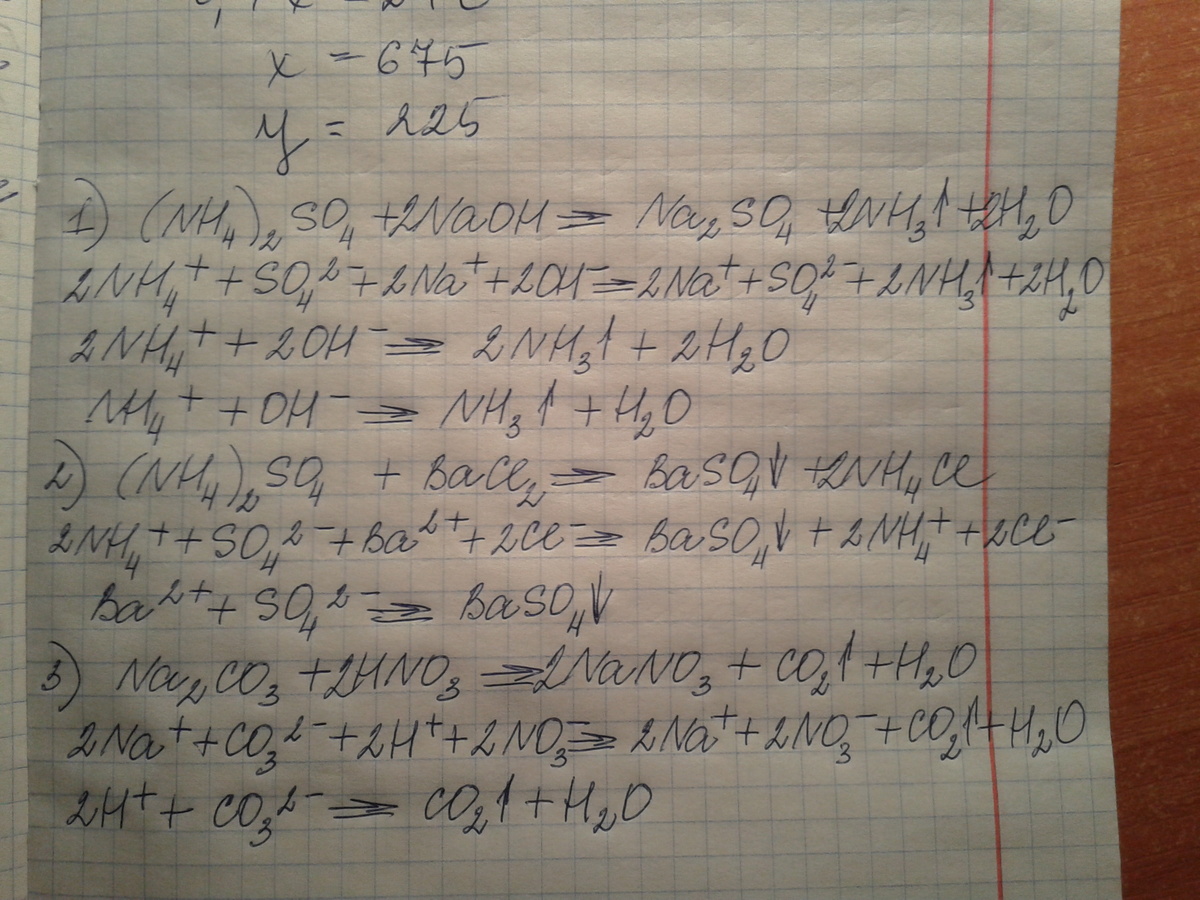 x = 675
y = 225
1) (NH₄)₂SO₄ + 2NaOH ⇒ Na₂SO₄ + 2NH₃↑ + 2H₂O
2NH₄⁺ + SO₄²⁻ + 2Na⁺ + 2OH⁻ ⇒ 2Na⁺ + SO₄²⁻ + 2NH₃↑ + 2H₂O
2NH₄⁺ + 2OH⁻ ⇒ 2NH₃↑ + 2H₂O
NH₄⁺ + OH⁻ ⇒ NH₃↑ + H₂O
2) (NH₄)₂SO₄ + BaCl₂ ⇒ BaSO₄↓ + 2NH₄Cl
2NH₄⁺ + SO₄²⁻ + Ba²⁺ + 2Cl⁻ ⇒ BaSO₄↓ + 2NH₄⁺ + 2Cl⁻
Ba²⁺ + SO₄²⁻ ⇒ BaSO₄↓
3) Na₂CO₃ + 2HNO₃ ⇒ 2NaNO₃ + CO₂↑ + H₂O
2Na⁺ + CO₃²⁻ + 2H⁺ + 2NO₃⁻ ⇒ 2Na⁺ + 2NO₃⁻ + CO₂↑ + H₂O
2H⁺ + CO₃²⁻ ⇒ CO₂↑ + H₂O